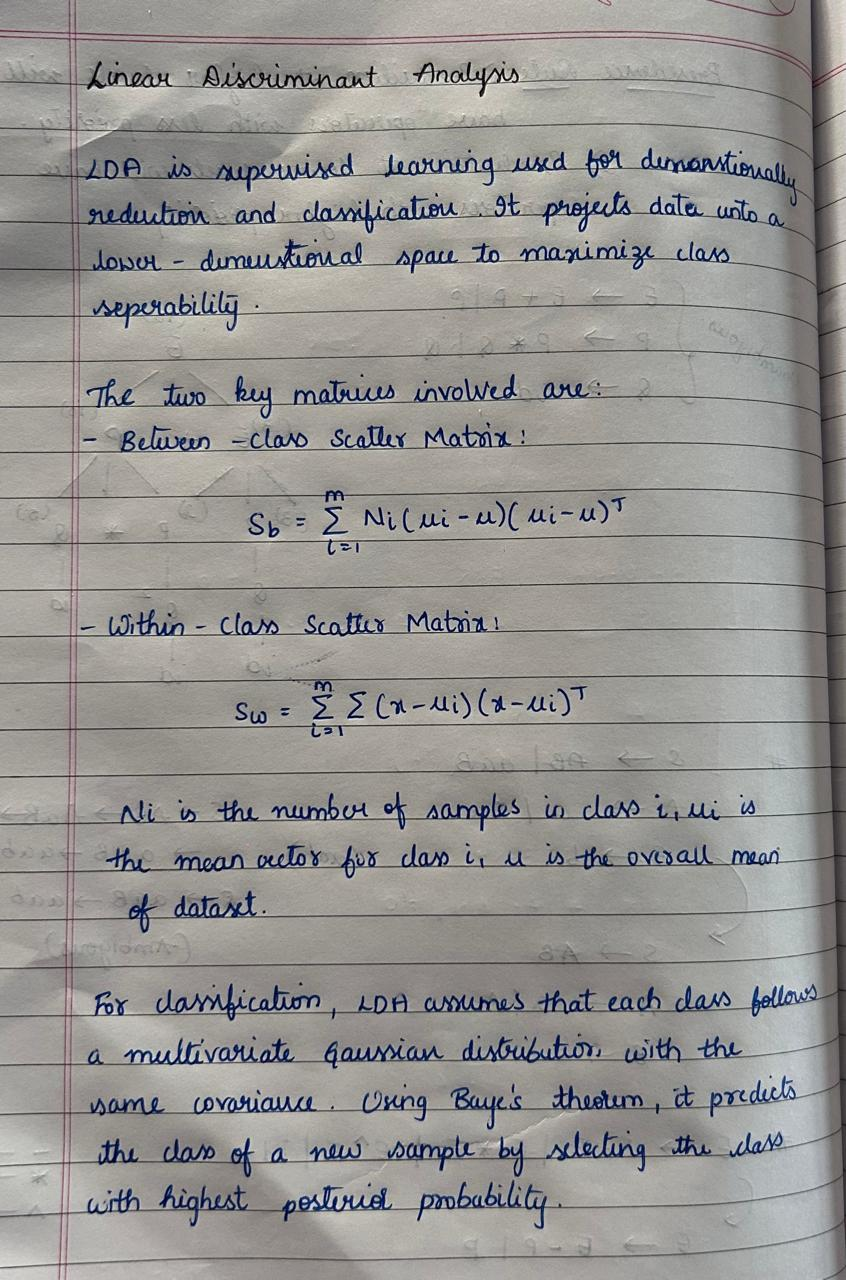 Linear Discriminant Analysis
LDA is supervised learning used for dimenstionally
reduction and classification. It projects data unto a
lower - dimenstional space to maximize class
seperability.
The two key matrices involved are:
- Between - class Scatter Matrix:
Sb = m Σ i=1 Ni (μi - μ)(μi - μ)ᵀ
- Within - Class Scatter Matrix:
Sw = m Σ i=1 Σ (x - μi) (x - μi)ᵀ
Ni is the number of samples in class i, μi is
the mean vector for class i, μ is the overall mean
of dataset.
For classification, LDA assumes that each class follows
a multivariate Gaussian distribution with the
same covariance. Using Baye's theorem, it predicts
the class of a new sample by selecting the class
with highest posterior probability.